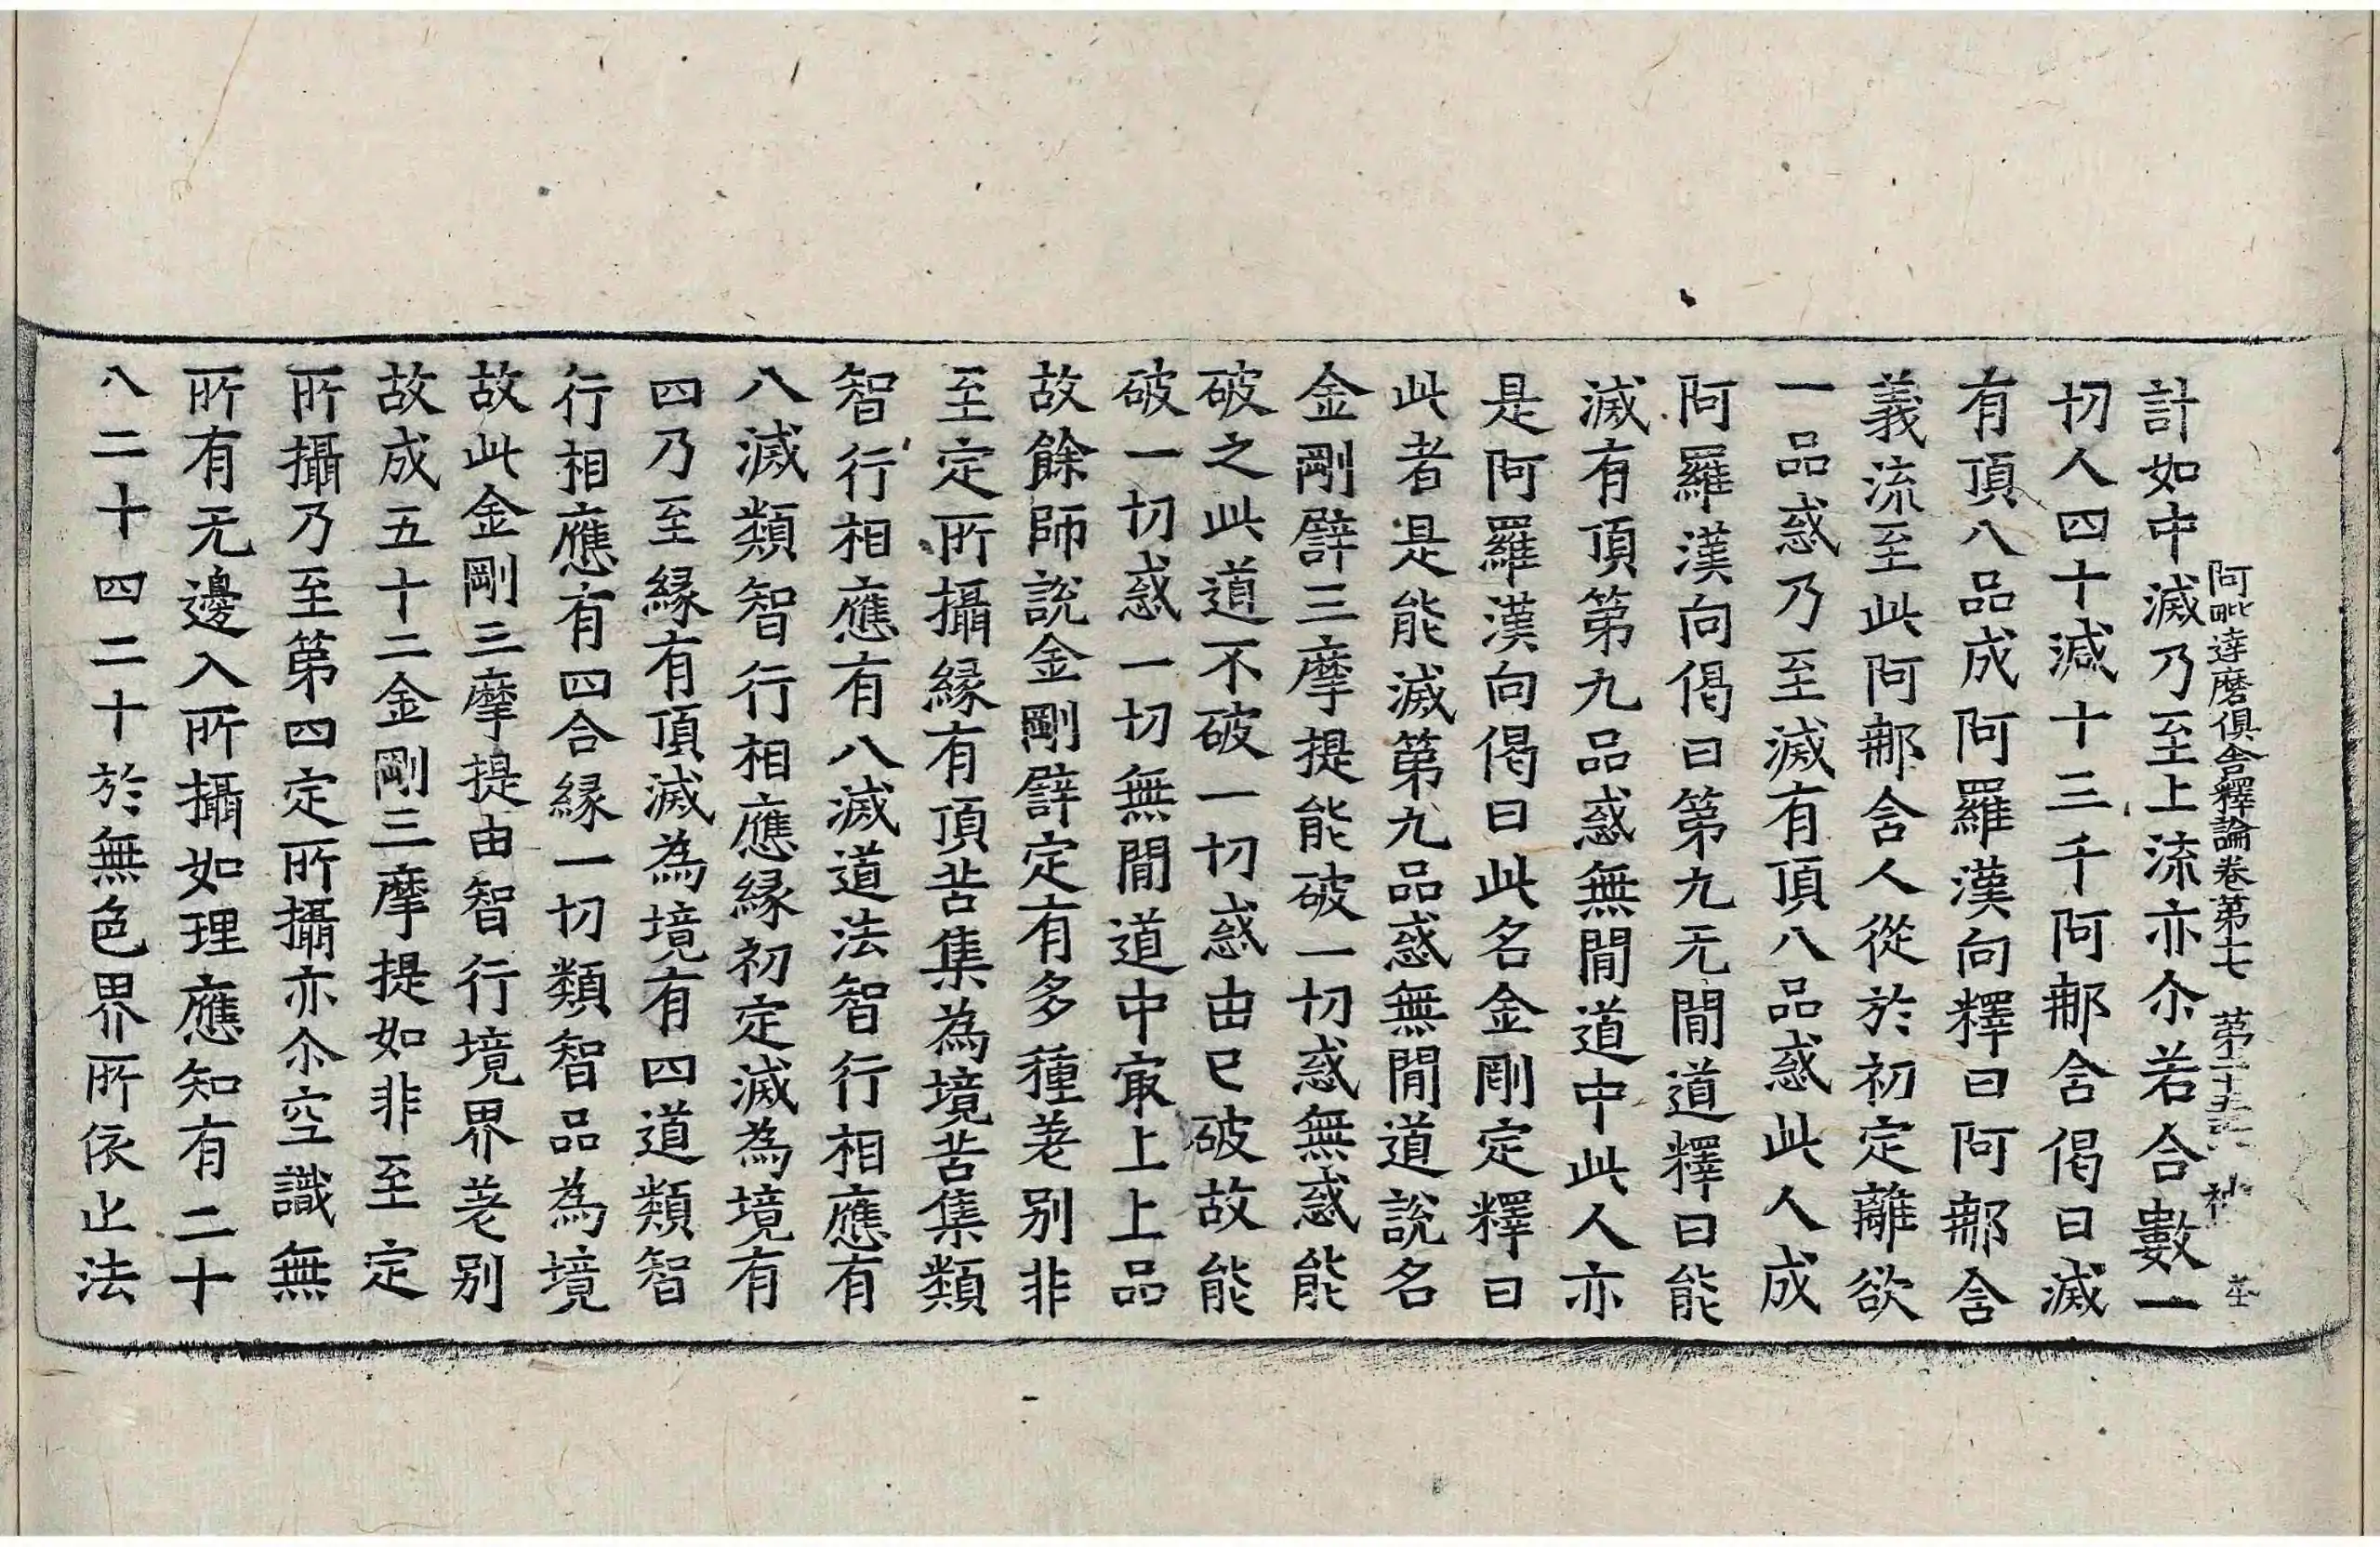 阿毗達磨俱舍釋論卷第七 第二十 張
計如中滅乃至上流亦尒若合數一
切人四十減十三千阿那含偈曰滅
有頂八品成阿羅漢向釋曰阿那含
義流至此阿那含人從於初定離欲
一品惑乃至滅有頂八品惑此人成
阿羅漢向偈曰第九无間道釋曰能
滅有頂第九品惑無間道中此人亦
是阿羅漢向偈曰此名金剛定釋曰
此者是能滅第九品惑無間道說名
金剛譬三摩提能破一切惑無惑能
破之此道不破一切惑由已破故能
破一切惑一切無間道中㝡上上品
故餘師說金剛譬定有多種差別非
至定所攝緣有頂苦集為境苦集類
智行相應有八滅道法智行相應有
八滅類智行相應緣初定滅為境有
四乃至緣有頂滅為境有四道類智
行相應有四合緣一切類智品為境
故此金剛三摩提由智行境界差別
故成五十二金剛三摩提如非至定
所攝乃至第四定所攝亦尒空識無
所有无邊入所攝如理應知有二十
八二十四二十於無色界所依止法